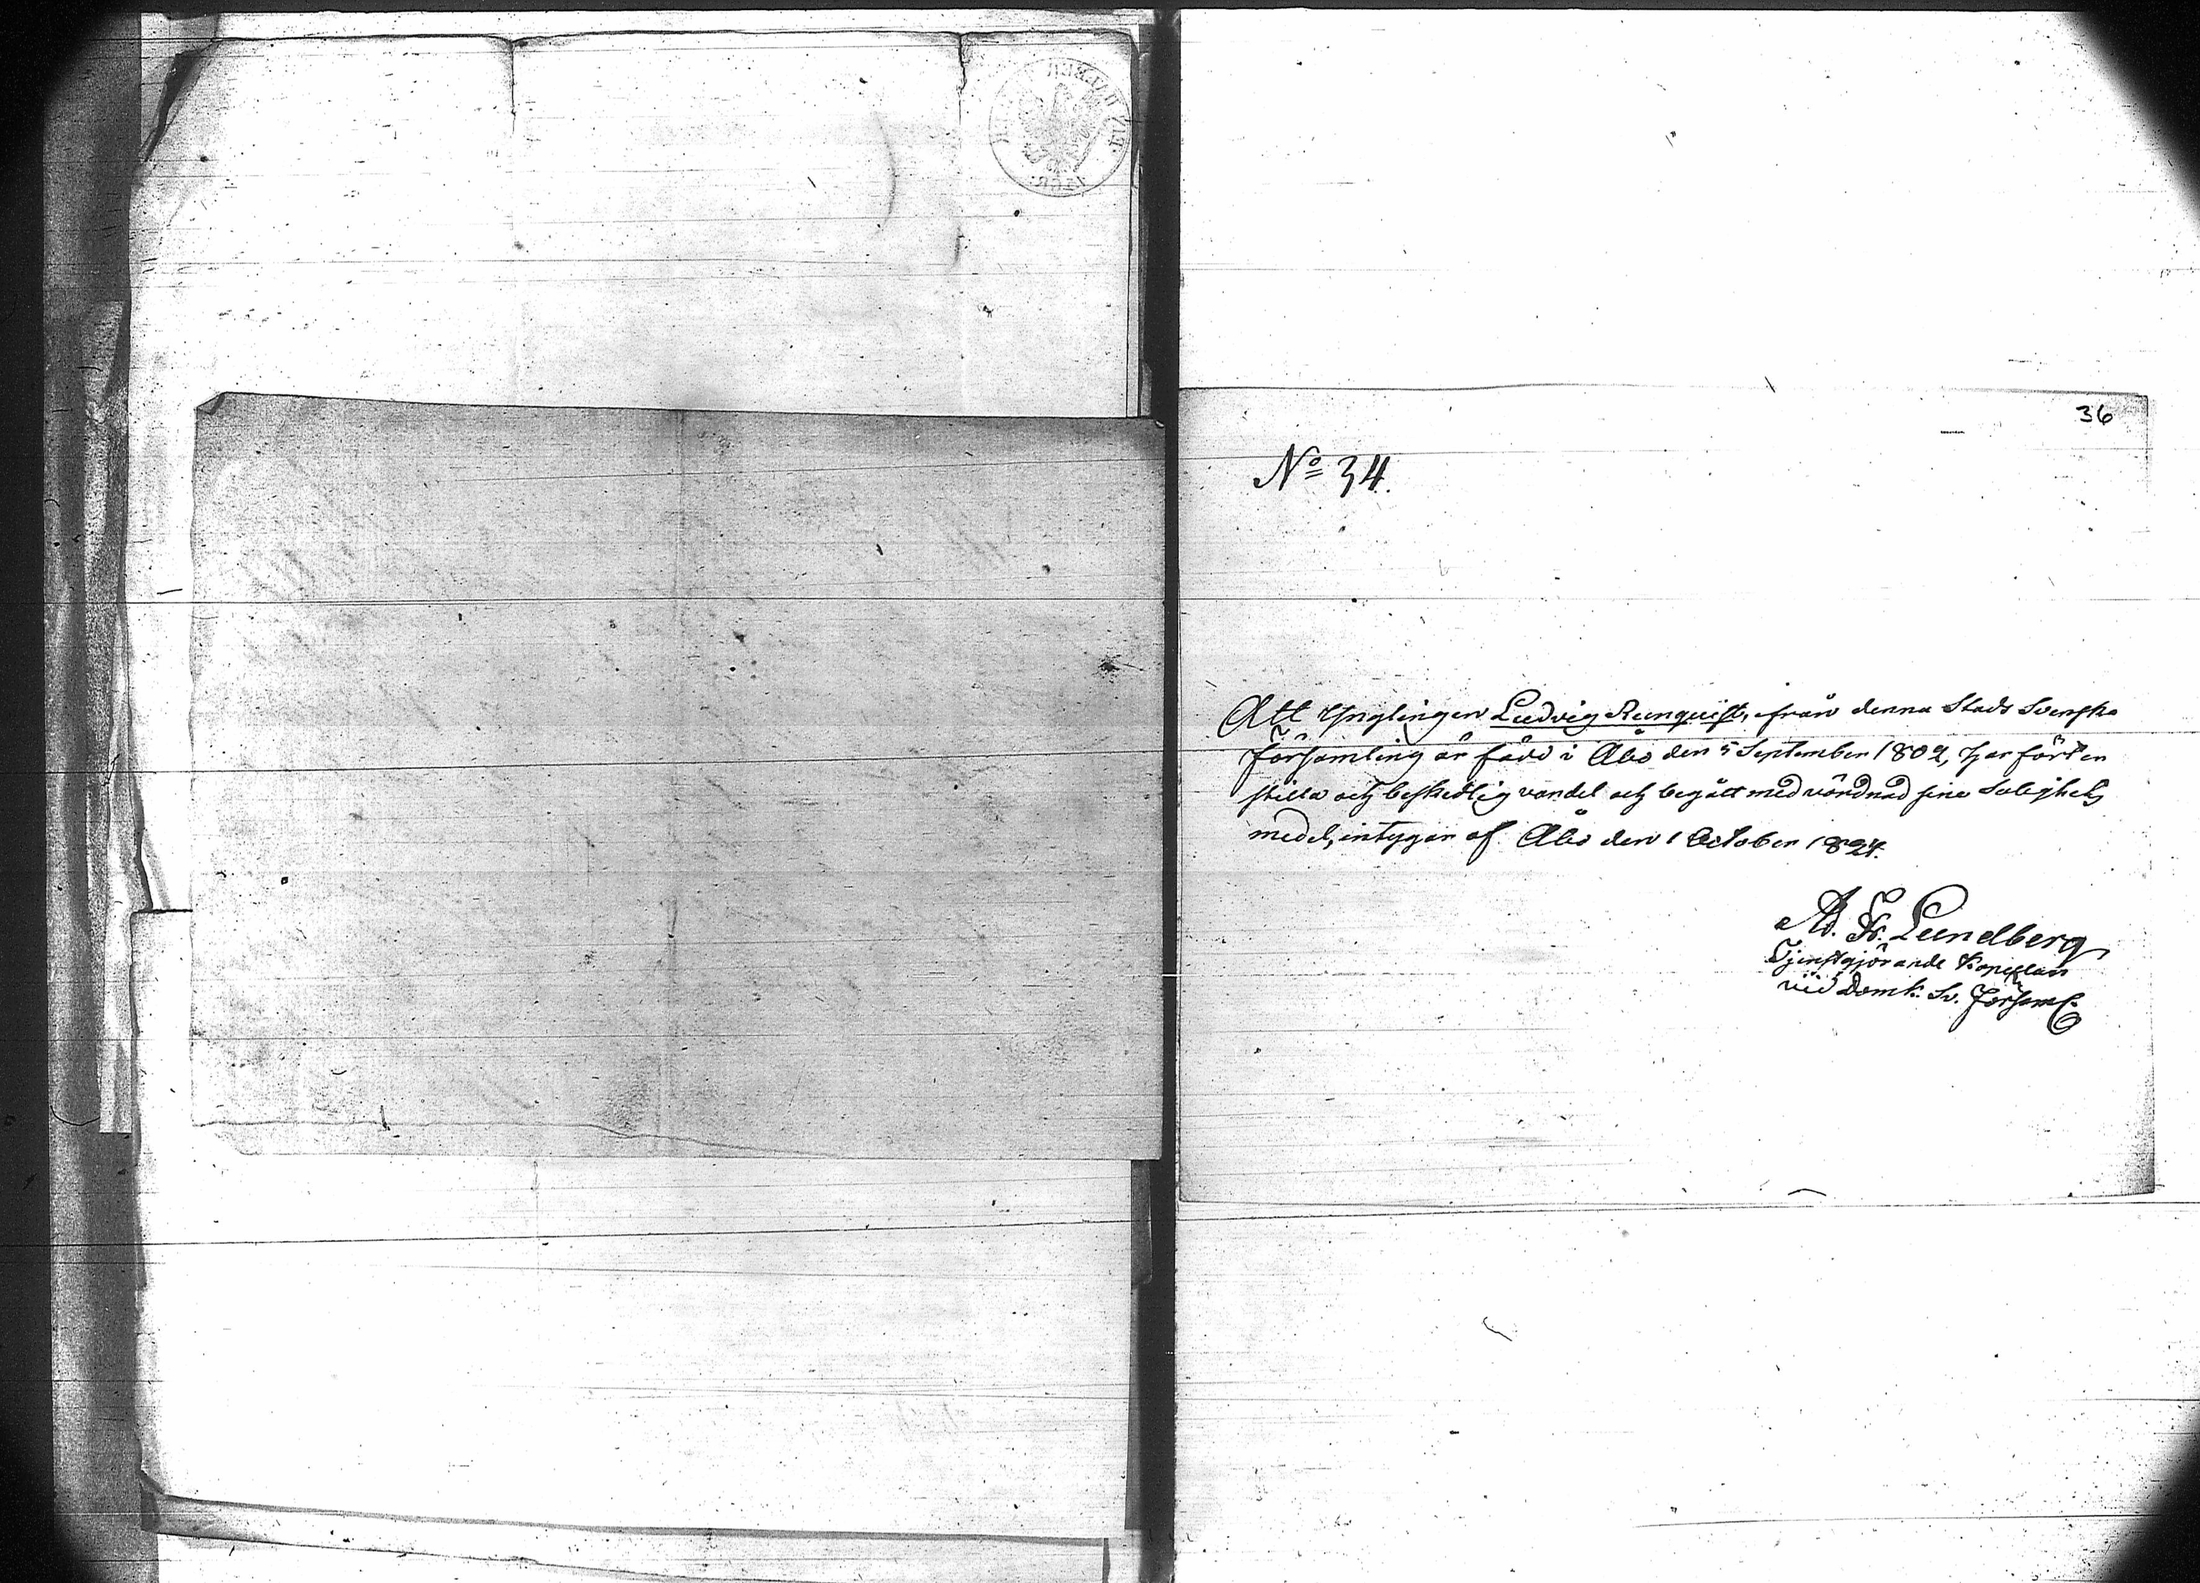 36
No 34.
Att Ynglingen Ludvig Runquist, ifrån denna Stads Svenska
församling är född i Åbo den 5 September 1802, har fört en
stilla och beskedlig vandel och begått med vördnad sina Salighets
medel, intygar af Åbo den 1 October 1824.
Ad. Fr. Lundberg
Tjenstgjörande Kapellan
vid Domk. Sv. Församl.